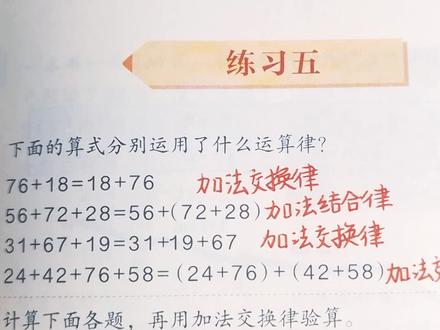 练习五
下面的算式分别运用了什么运算律?
76+18=18+76 加法交换律
56+72+28=56+(72+28) 加法结合律
31+67+19=31+19+67 加法交换律
24+42+76+58=(24+76)+(42+58) 加法交
计算下面各题,再用加法交换律验算。